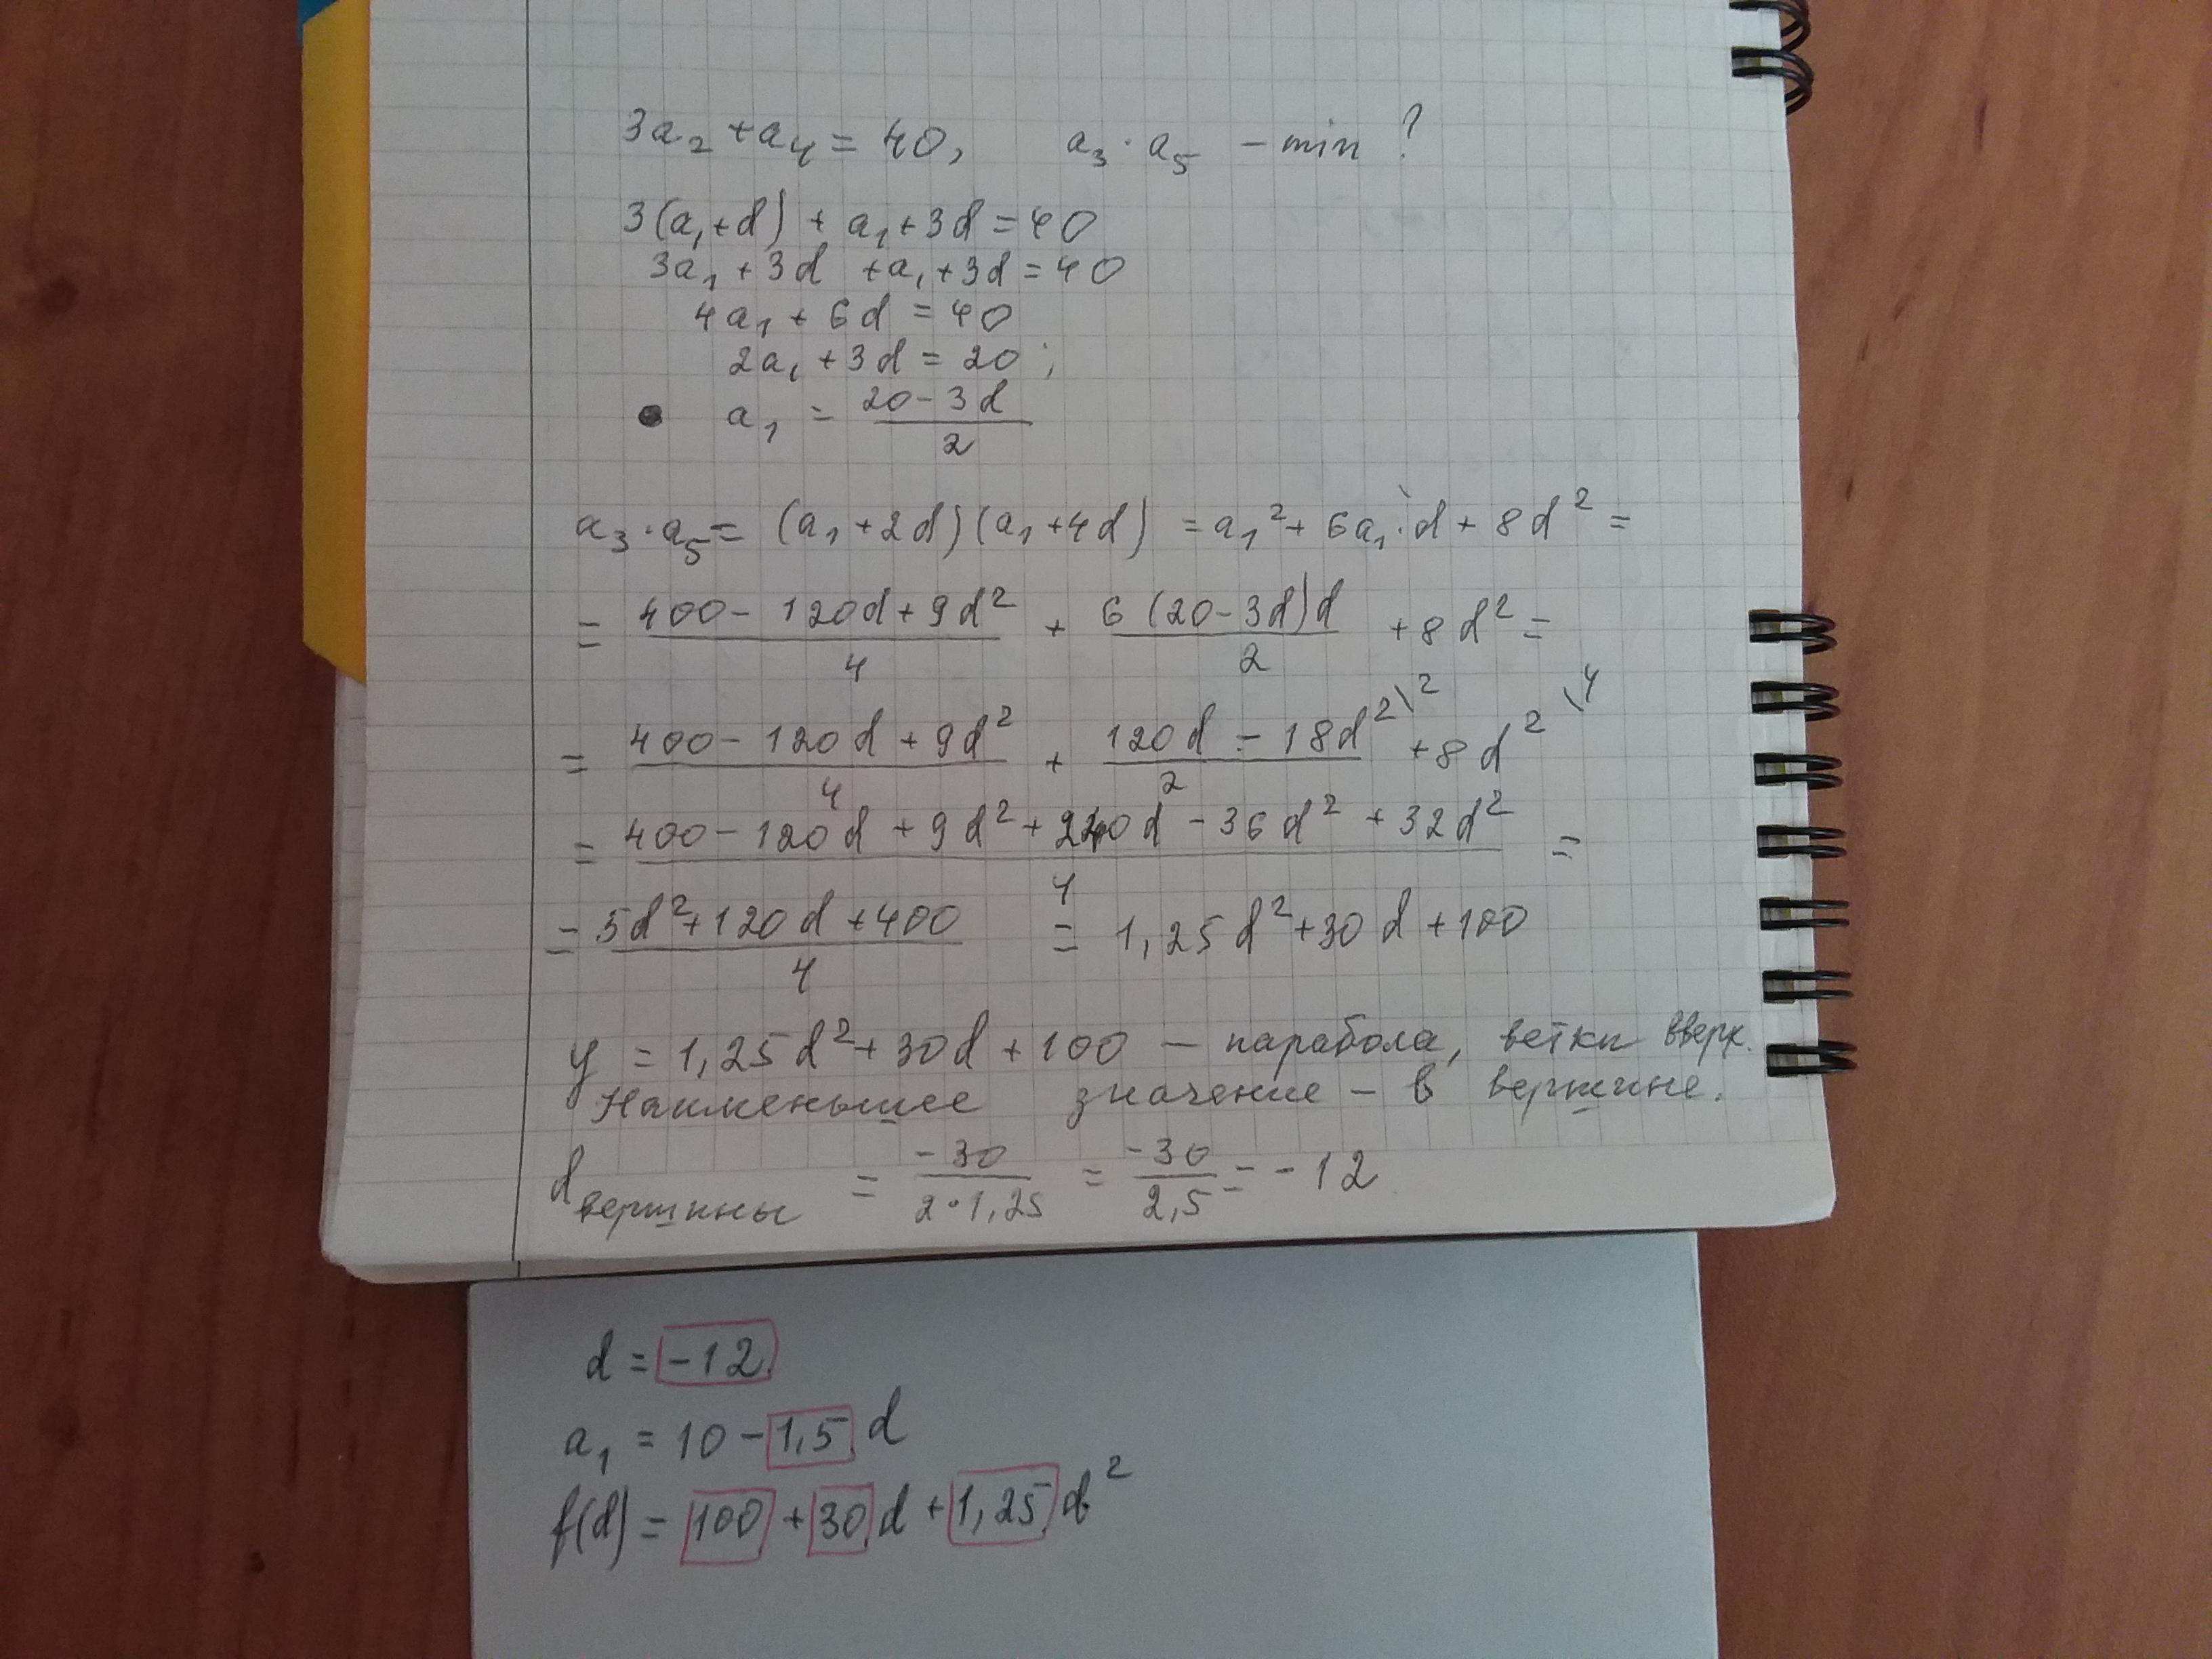 3a₂ + a₄ = 40, a₃ · a₅ – min ?
3(a₁+d) + a₁+3d = 40
3a₁ + 3d + a₁ + 3d = 40
4a₁ + 6d = 40
2a₁ + 3d = 20 ;
• a₁ = (20 - 3d)/2
a₃ · a₅ = (a₁ + 2d)(a₁ + 4d) = a₁² + 6a₁·d + 8d² =
= (400 - 120d + 9d²)/4 + (6(20-3d)d)/2 + 8d² =
= (400 - 120d + 9d²)/4 + (120d - 18d²)/2 \2 + 8d² \4
= (400 - 120d + 9d² + 240d - 36d² + 32d²)/4 =
= (5d² + 120d + 400)/4 = 1,25d² + 30d + 100
y = 1,25d² + 30d + 100 – парабола, ветки вверх.
Наименьшее значение – в вершине.
d вершины = -30/(2·1,25) = -30/2,5 = -12
d = -12
a₁ = 10 - 1,5 d
f(d) = 100 + 30 d + 1,25 d²